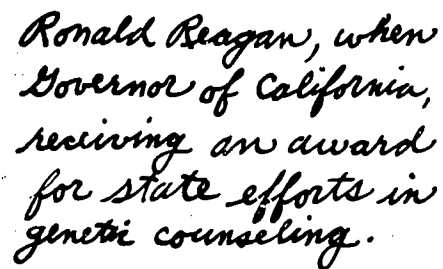 Ronald Reagan, when
Governor of California,
receiving an award
for state efforts in
genetic counseling.